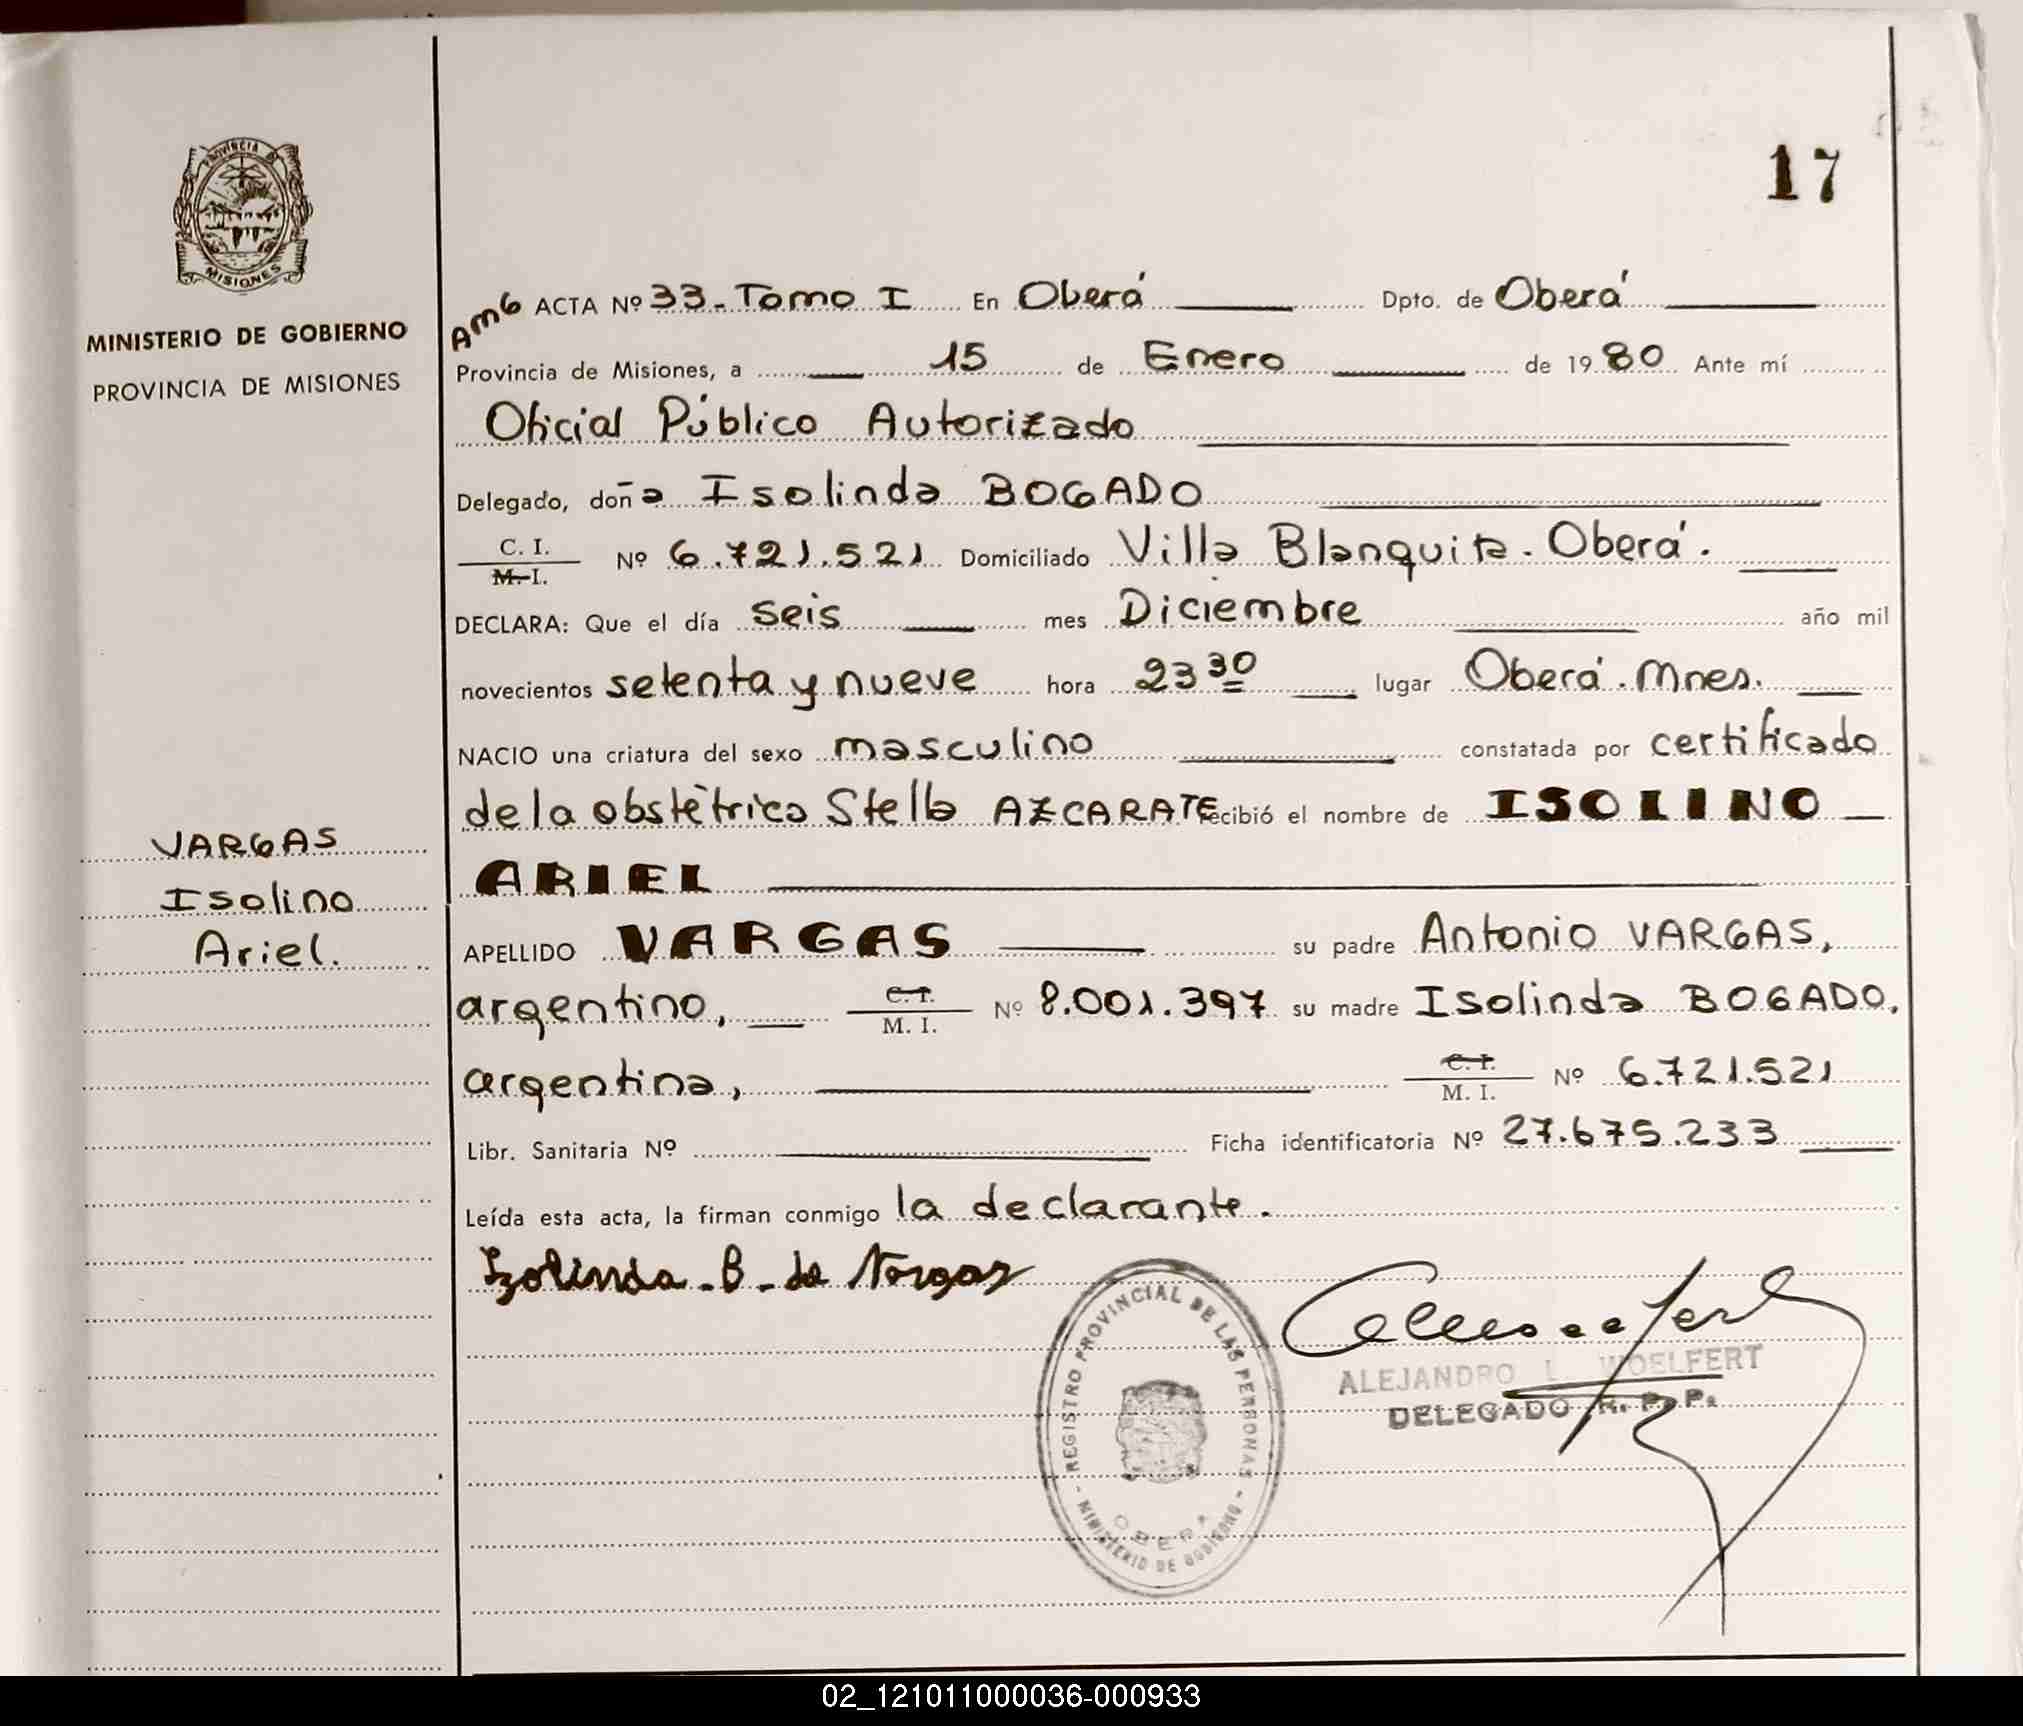 17
PROVINCIA DE
MISIONES
MINISTERIO DE GOBIERNO
PROVINCIA DE MISIONES
VARGAS
Isolino
Ariel.
AmG ACTA Nº 33-Tomo I En Oberá Dpto. de Oberá
Provincia de Misiones, a 15 de Enero de 1980 Ante mí
Oficial Público Autorizado
Delegado, doña Isolinda BOGADO
C. I.
M. I. Nº 6.721.521 Domiciliado Villa Blanquita. Oberá.
DECLARA: Que el día seis mes Diciembre año mil
novecientos setenta y nueve hora 23 30 lugar Oberá. Mnes.
NACIO una criatura del sexo masculino constatada por certificado
de la obstètrica Stella AZCARATE recibió el nombre de ISOLINO
ARIEL
APELLIDO VARGAS su padre Antonio VARGAS,
argentino, C. I. M. I. Nº 8.001.397 su madre Isolinda BOGADO,
argentina, C. I. M. I. Nº 6.721.521
Libr. Sanitaria Nº Ficha identificatoria Nº 27.675.233
Leída esta acta, la firman conmigo la declarante.
Izolinda - B - de Vargas
REGISTRO PROVINCIAL DE LAS PERSONAS - MINISTERIO DE GOBIERNO -
OBERA
ALEJANDRO L. WOELFERT
DELEGADO R. P. P.
02_121011000036-000933